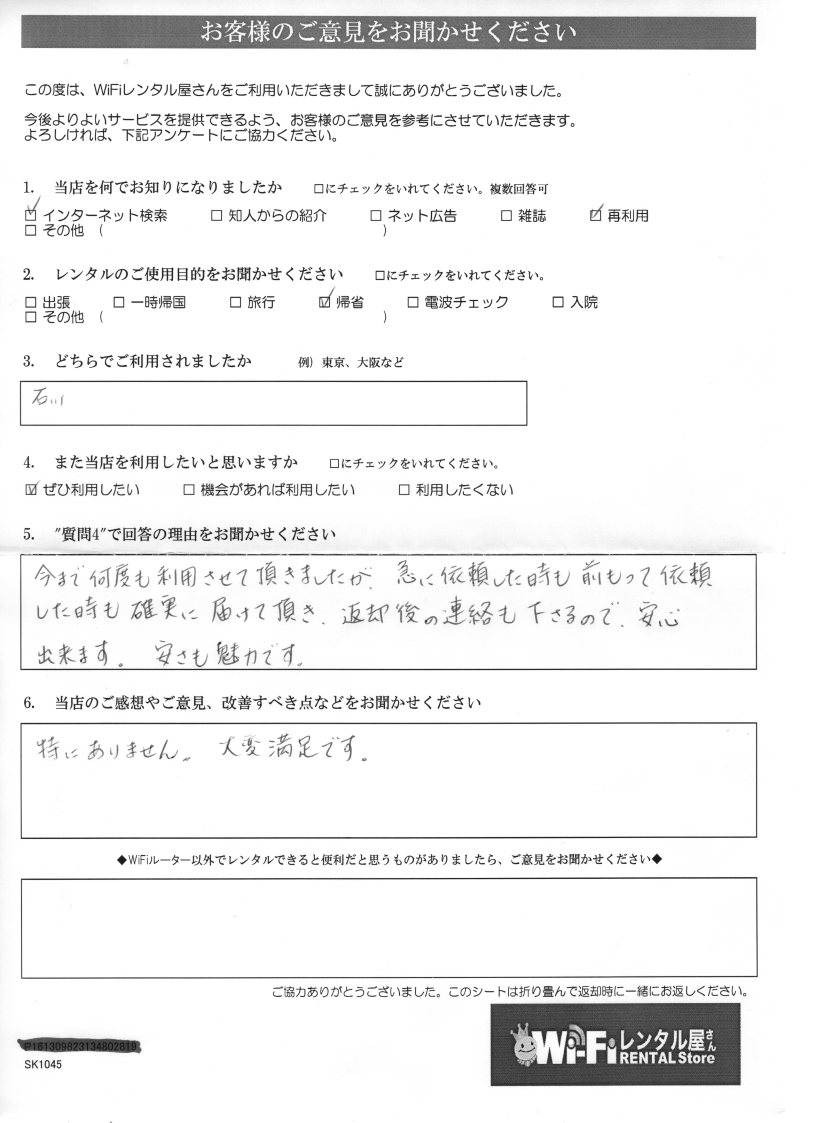 お客様のご意見をお聞かせください
この度は、WiFiレンタル屋さんをご利用いただきまして誠にありがとうございました。
今後よりよいサービスを提供できるよう、お客様のご意見を参考にさせていただきます。
よろしければ、下記アンケートにご協力ください。
1. 当店を何でお知りになりましたか □にチェックをいれてください。複数回答可
☑ インターネット検索 □ 知人からの紹介 □ ネット広告 □ 雑誌 ☑ 再利用
□ その他 ( )
2. レンタルのご使用目的をお聞かせください □にチェックをいれてください。
□ 出張 □ 一時帰国 □ 旅行 ☑ 帰省 □ 電波チェック □ 入院
□ その他 ( )
3. どちらでご利用されましたか 例) 東京、大阪など
石川
4. また当店を利用したいと思いますか □にチェックをいれてください。
☑ ぜひ利用したい □ 機会があれば利用したい □ 利用したくない
5. "質問4"で回答の理由をお聞かせください
今まで何度も利用させて頂きましたが、急に依頼した時も前もって依頼
した時も確実に届けて頂き、返却後の連絡も下さるので、安心
出来ます。 安さも魅力です。
6. 当店のご感想やご意見、改善すべき点などをお聞かせください
特にありません。 大変満足です。
◆WiFiルーター以外でレンタルできると便利だと思うものがありましたら、ご意見をお聞かせください◆
ご協力ありがとうございました。このシートは折り畳んで返却時に一緒にお返しください。
Wi-Fiレンタル屋さん
RENTAL Store
SK1045